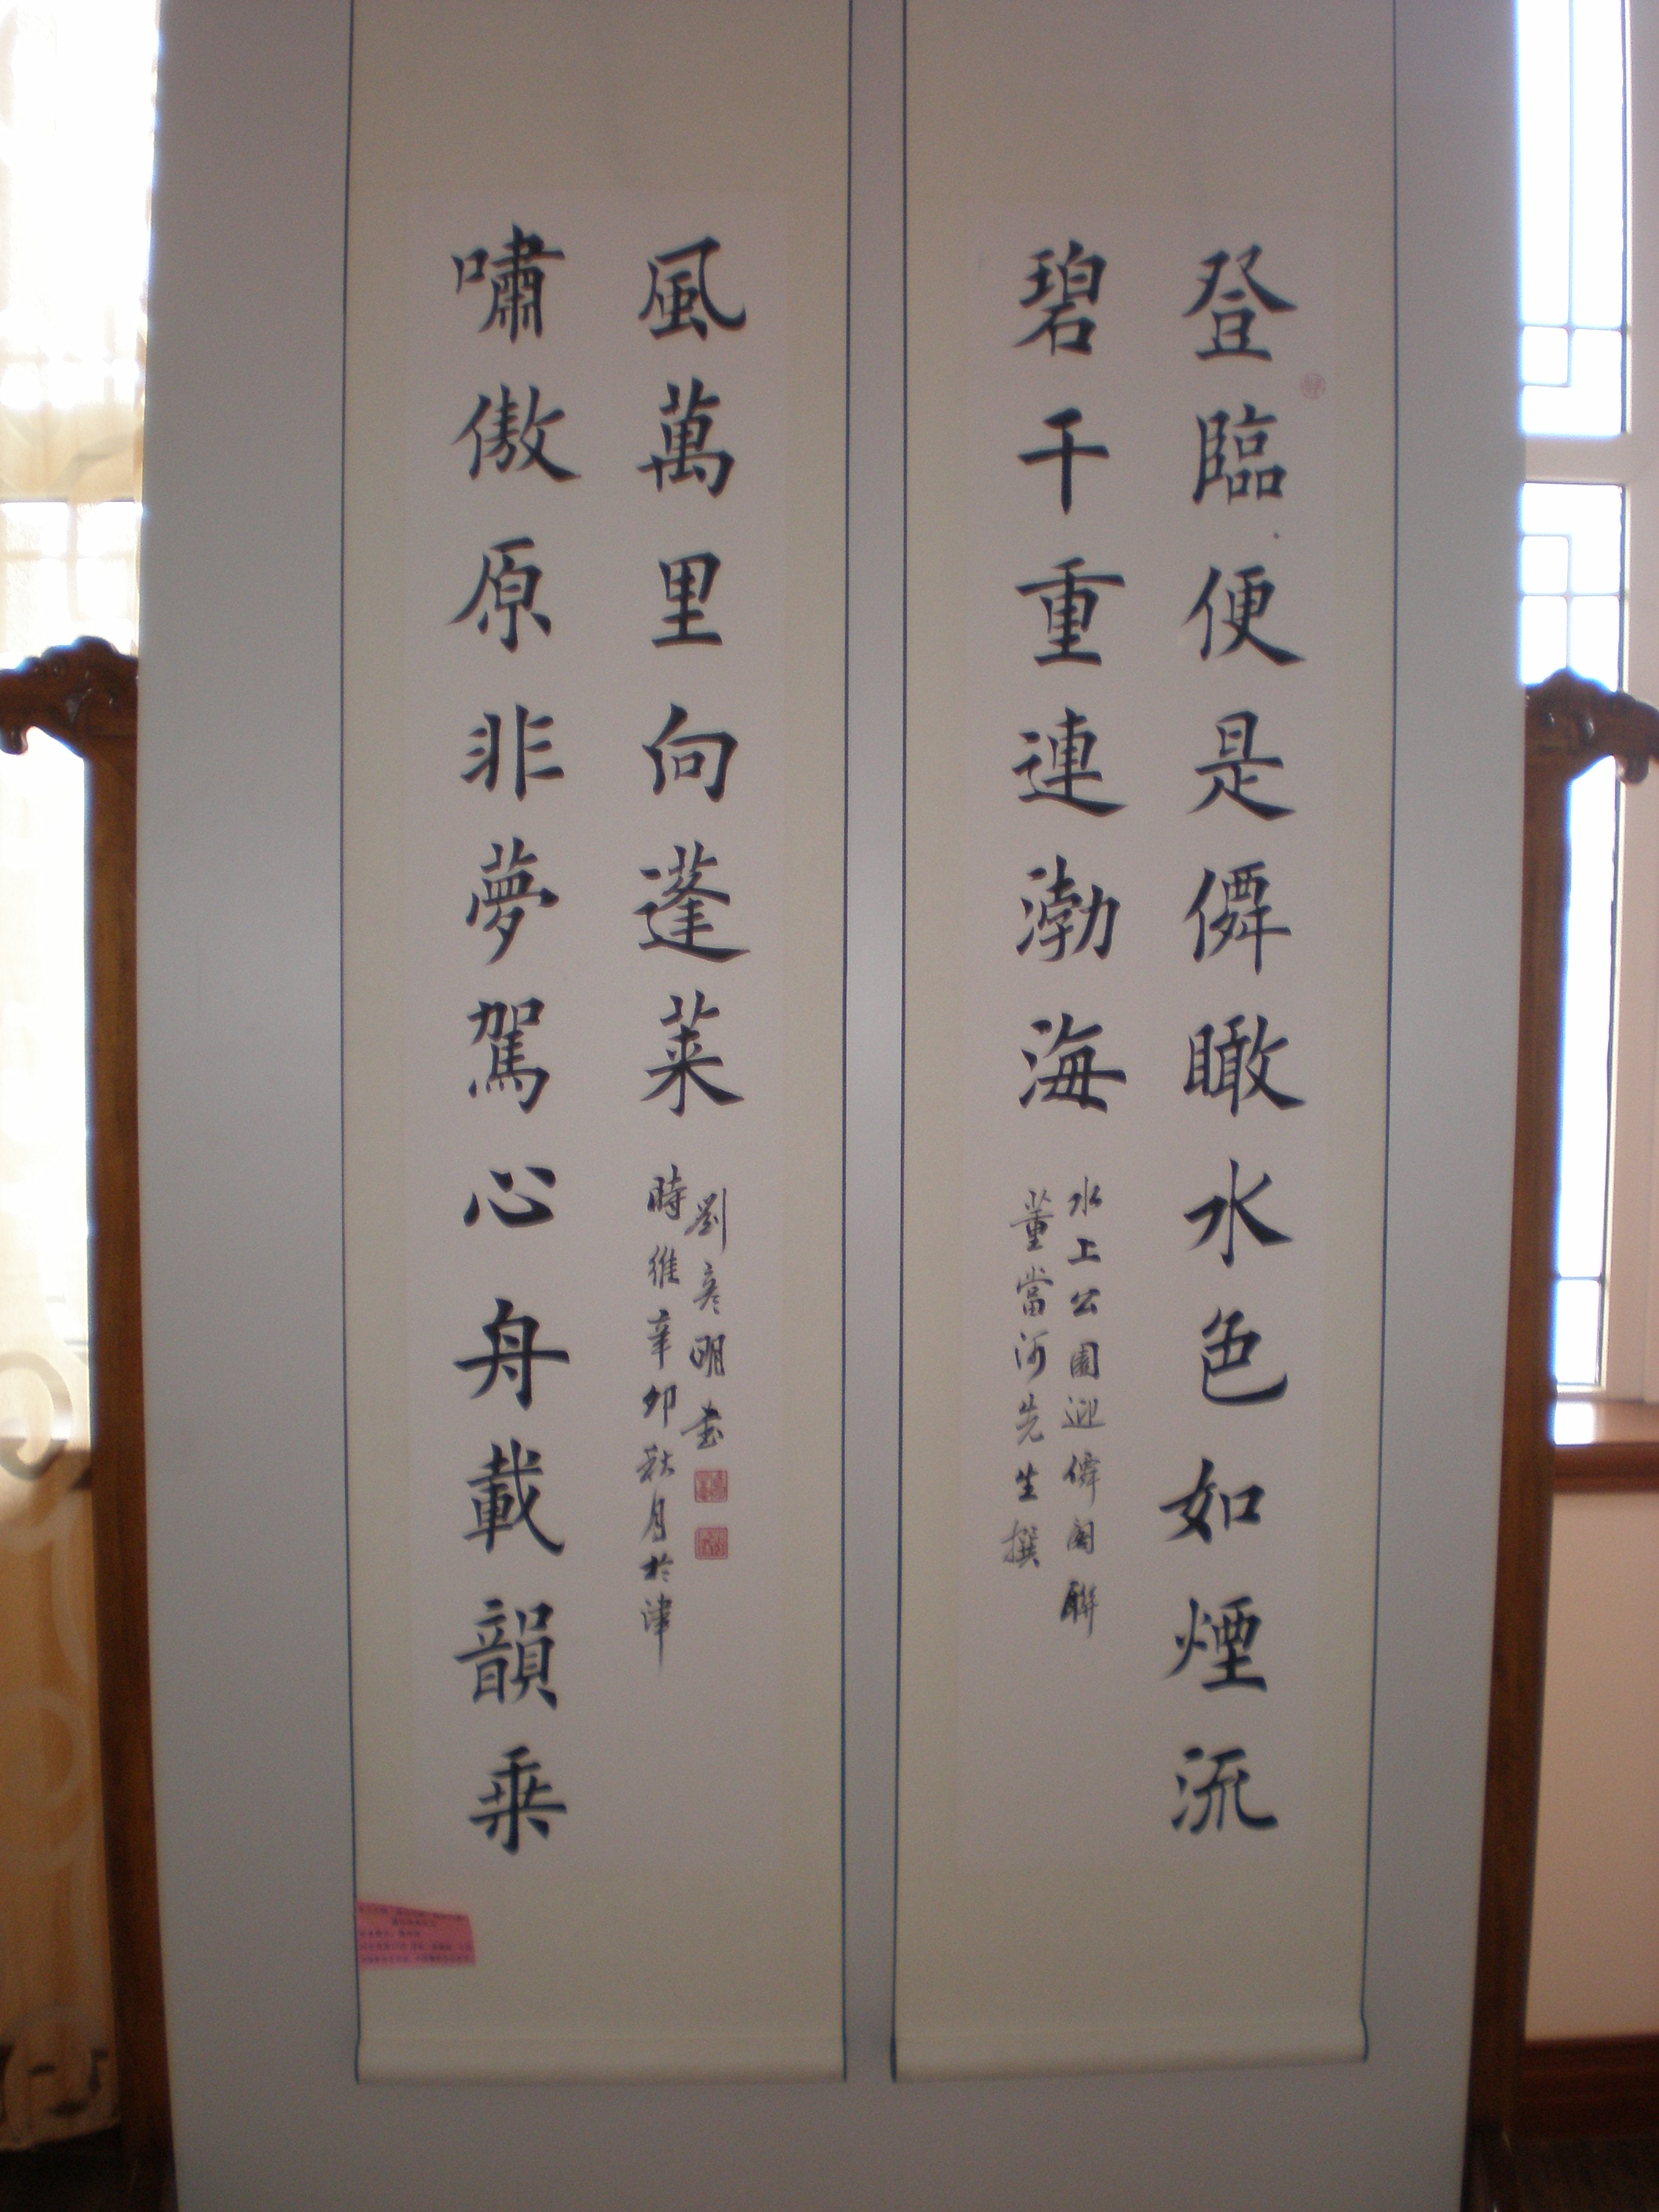 登臨便是僊瞰水色如煙流
碧千重連渤海
水上公園迎僊閣聯
董當河先生撰
嘯傲原非夢駕心舟載韻乘
風萬里向蓬莱
時維辛卯秋月於津
劉彦明書